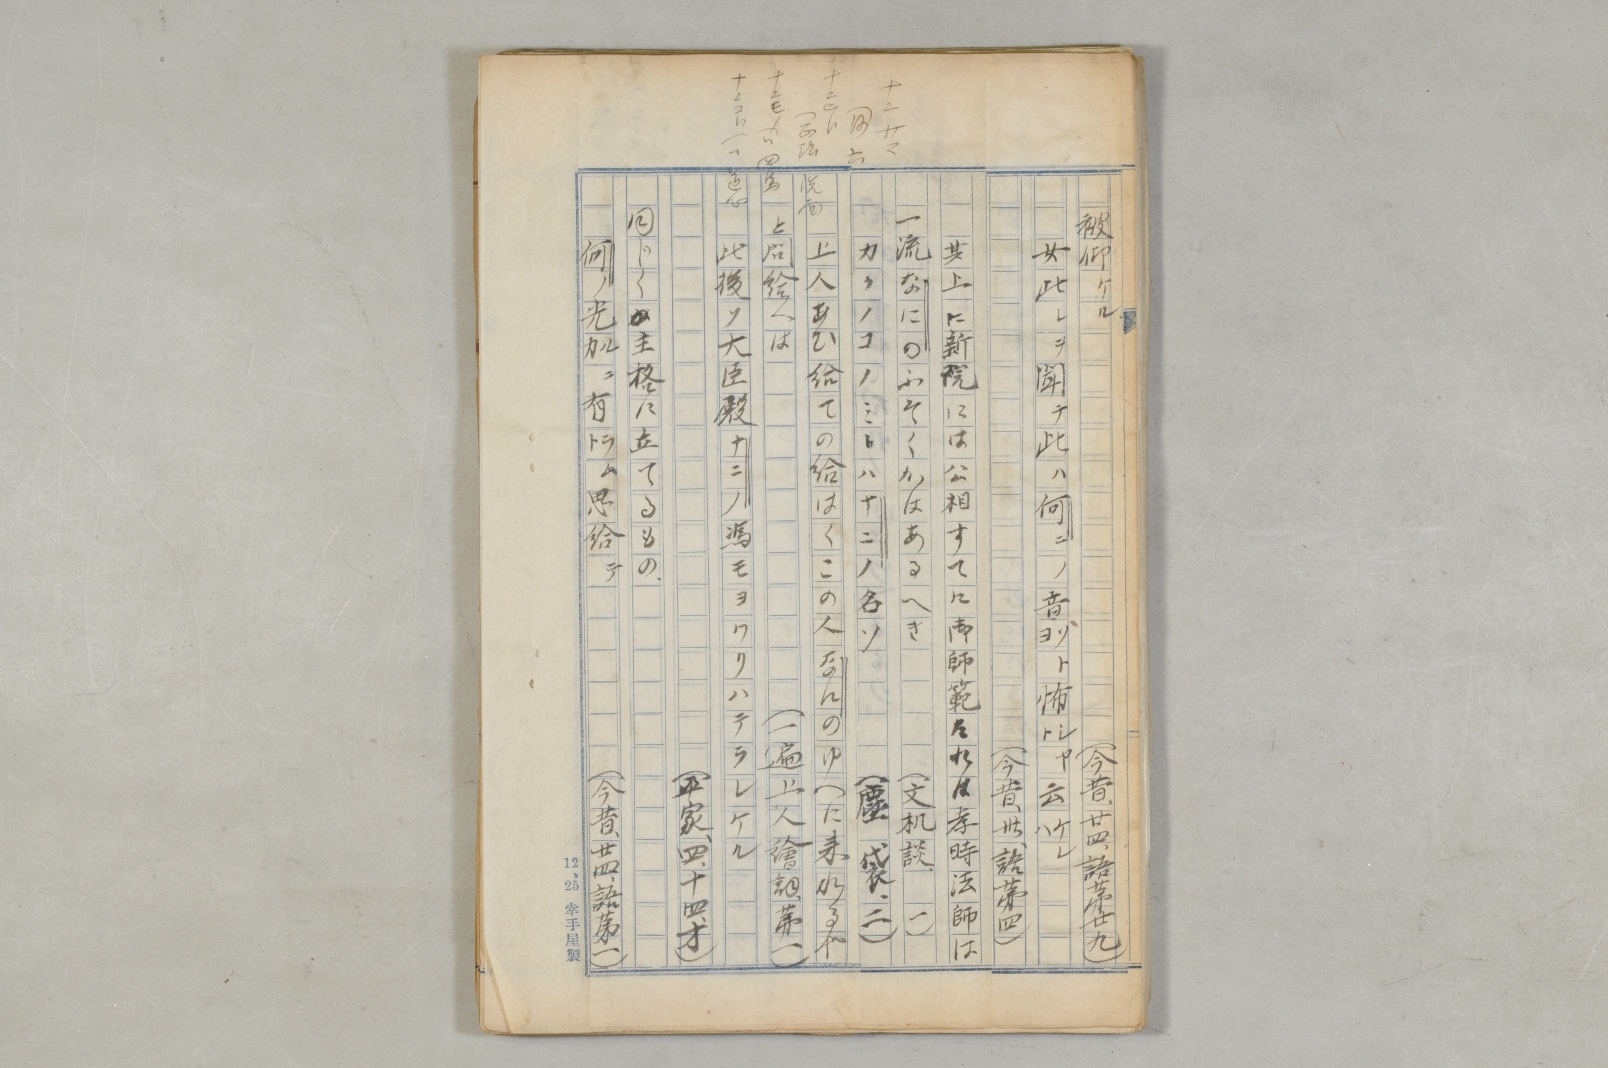 被仰ケル
(今昔、廿四、語第廿九)
女此レヲ聞テ此ハ何ニノ音ヨソト怖シヤト云ケレハ
(今昔、卅、語第四)
其上に新院には公相すてに御師範たれは孝時法師は
一流なにのふそくかはあるへき
(文机談、一)
カクノコノミトハナニノ名ソ
(塵袋、二)
上人あひ給ての給はくこの人なにのゆへに来れるや
と問給へは
(一遍上人繪詞、第一)
此後ソ大臣殿ナニノ馮モヨワリハテラレケル
(平家、四、十四、オ)
同じくか主格に立てるもの、
何ノ光カルニ有トラム思給テ
(今昔、廿四、語第一)
12、25 幸手屋製